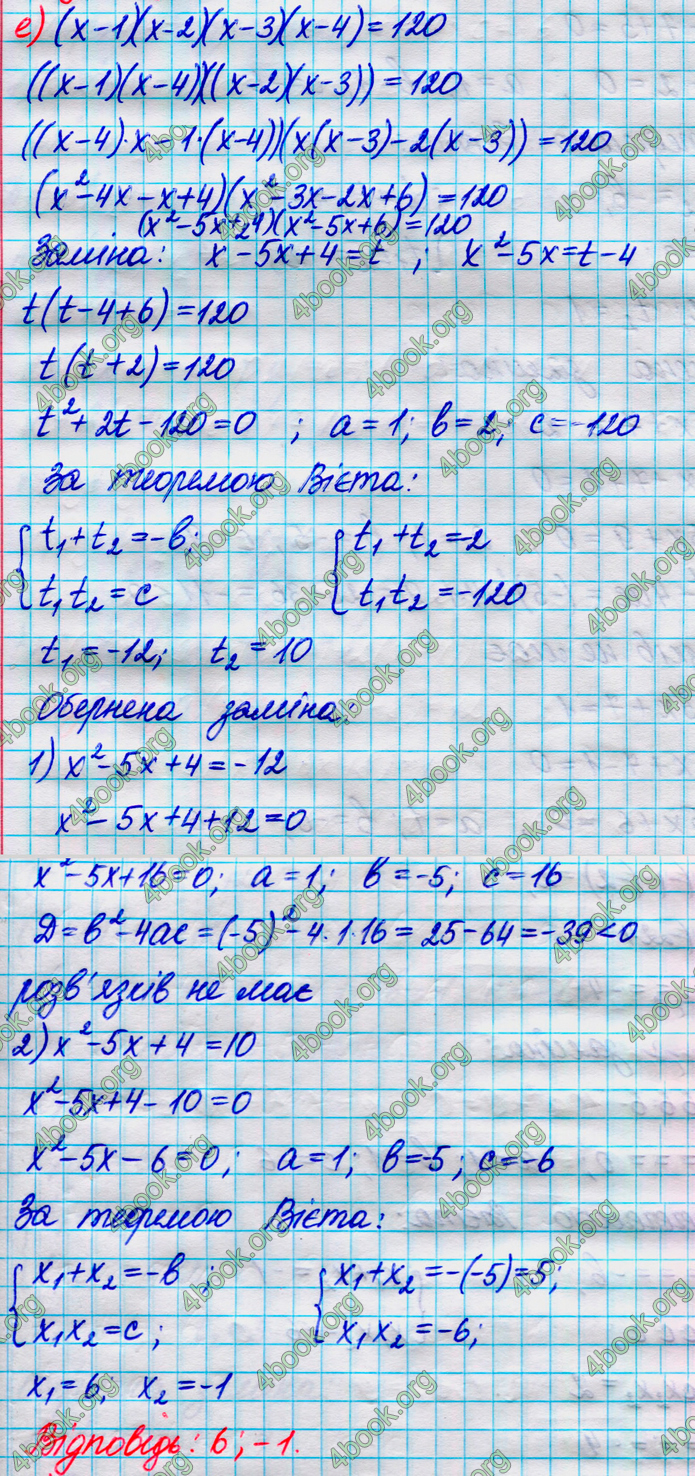 е) (x-1)(x-2)(x-3)(x-4)=120
((x-1)(x-4))((x-2)(x-3))=120
((x-4)·x-1·(x-4))(x(x-3)-2(x-3))=120
(x²-4x-x+4)(x²-3x-2x+6)=120
(x²-5x+4)(x²-5x+6)=120
Заміна: x²-5x+4=t ; x²-5x=t-4
t(t-4+6)=120
t(t+2)=120
t²+2t-120=0 ; a=1; b=2; c=-120
За теоремою Вієта:
{t₁+t₂=-b; {t₁+t₂=-2
{t₁t₂=c {t₁t₂=-120
t₁=-12; t₂=10
Обернена заміна:
1) x²-5x+4=-12
x²-5x+4+12=0
x²-5x+16=0; a=1; b=-5; c=16
Д=b²-4ac=(-5)²-4·1·16=25-64=-39<0
розв'язків не має
2) x²-5x+4=10
x²-5x+4-10=0
x²-5x-6=0; a=1; b=-5; c=-6
За теоремою Вієта:
{x₁+x₂=-b ; {x₁+x₂=-(-5)=5;
{x₁x₂=c; {x₁x₂=-6;
x₁=6; x₂=-1
Відповідь: 6; -1.
4book.org